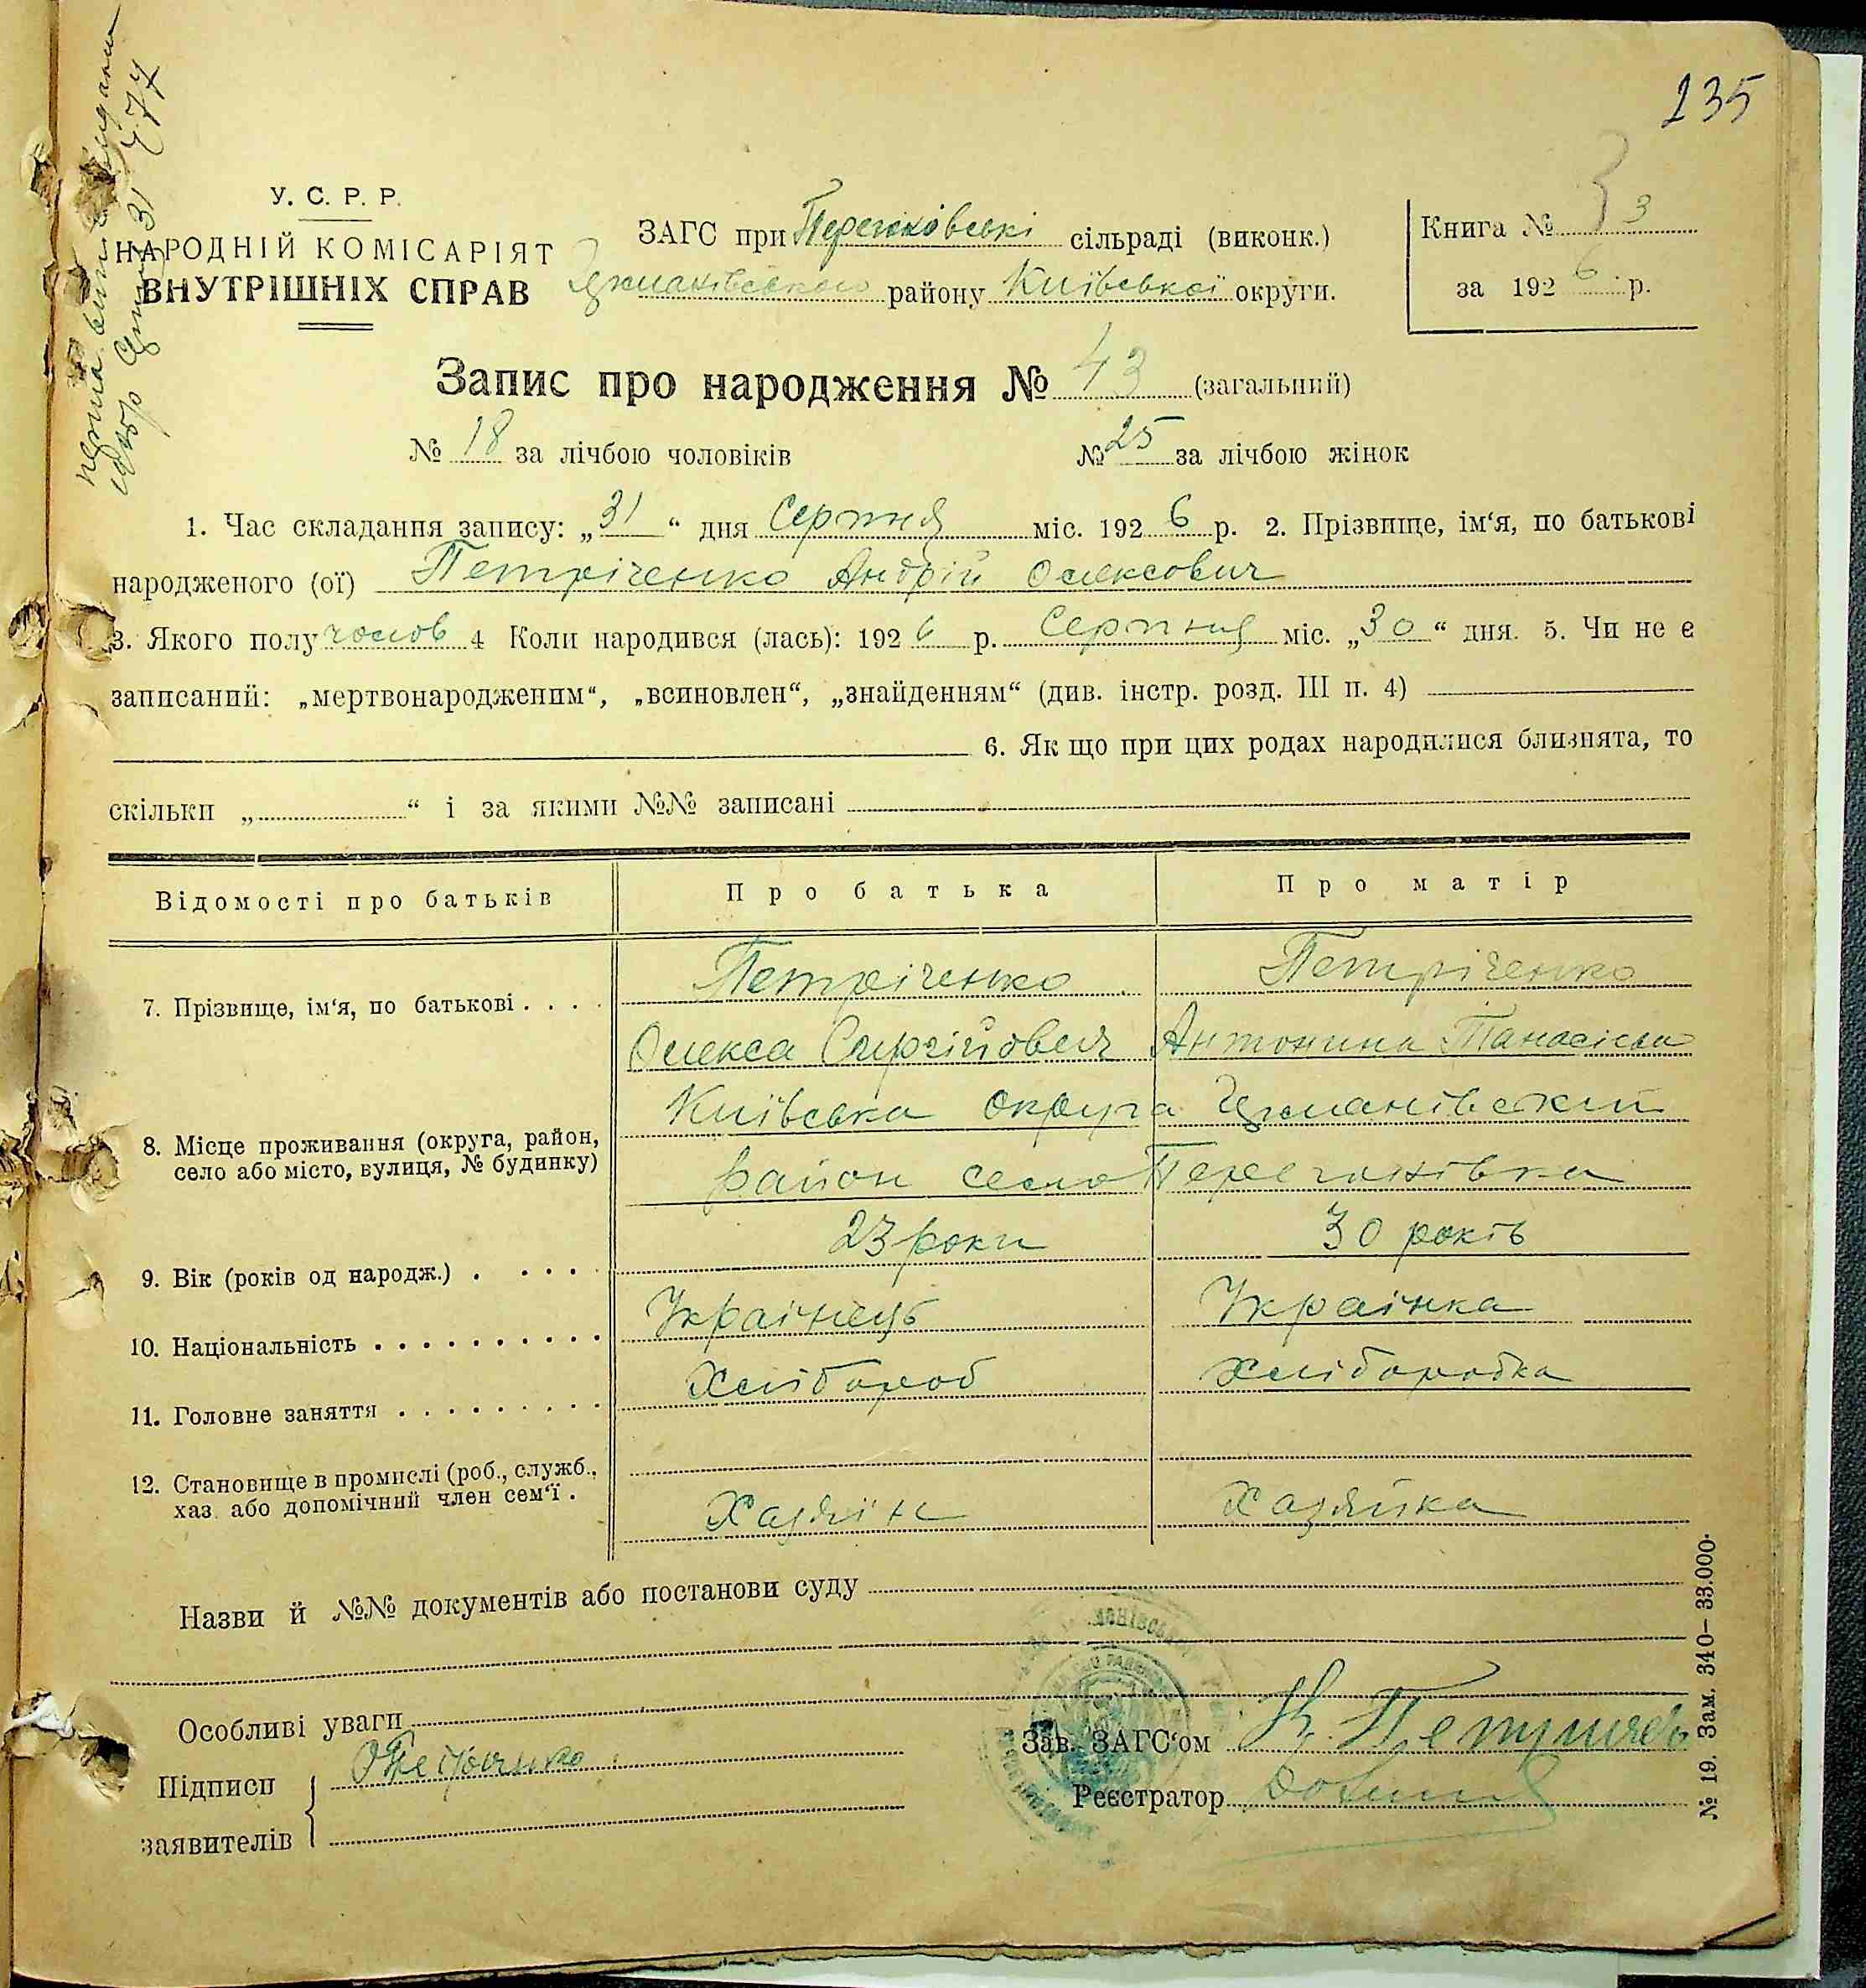 235
У. С. Р. Р.
НАРОДНІЙ КОМІСАРІЯТ
ВНУТРІШНІХ СПРАВ
ЗАГС при сільраді (виконк.)
району Київської округи.
Книга № 3
за 1926 р.
Запис про народження № 43 (загальний)
№ 18 за лічбою чоловіків № 25 за лічбою жінок
1. Час складання запису: „31“ дня Серпня міс. 1926 р. 2. Прізвище, ім‘я, по батькові
народженого (ої) Петріченко Андрій Олексович
3. Якого полу чолов 4 Коли народився (лась): 1926 р. Серпня міс. „30“ дня. 5. Чи не є
записаний: „мертвонародженим“, „всиновлен“, „знайденням“ (див. інстр. розд. III п. 4)
6. Як що при цих родах народилися близнята, то
скільки „ “ і за якими №№ записані
Відомості про батьків Про батька Про матір
7. Прізвище, ім‘я, по батькові . . . . Петріченко Петріченко
Олекса Сергійович Антонина
8. Місце проживання (округа, район, село або місто, вулиця, № будинку) Київська округа
район село Перегонівка
9. Вік (років од народж.) . . . . 23 роки 30 років
10. Національність . . . . . . . . . . Українець Українка
11. Головне заняття . . . . . . . . . Хлібороб Хліборобка
12. Становище в промислі (роб., служб., хаз. або допомічний член сем‘ї . Хазяїн Хазяйка
Назви й №№ документів або постанови суду
Особливі уваги
Підписи
заявителів
Зав. ЗАГС‘ом
Реєстратор
№ 19. Зам. 340–33.000.